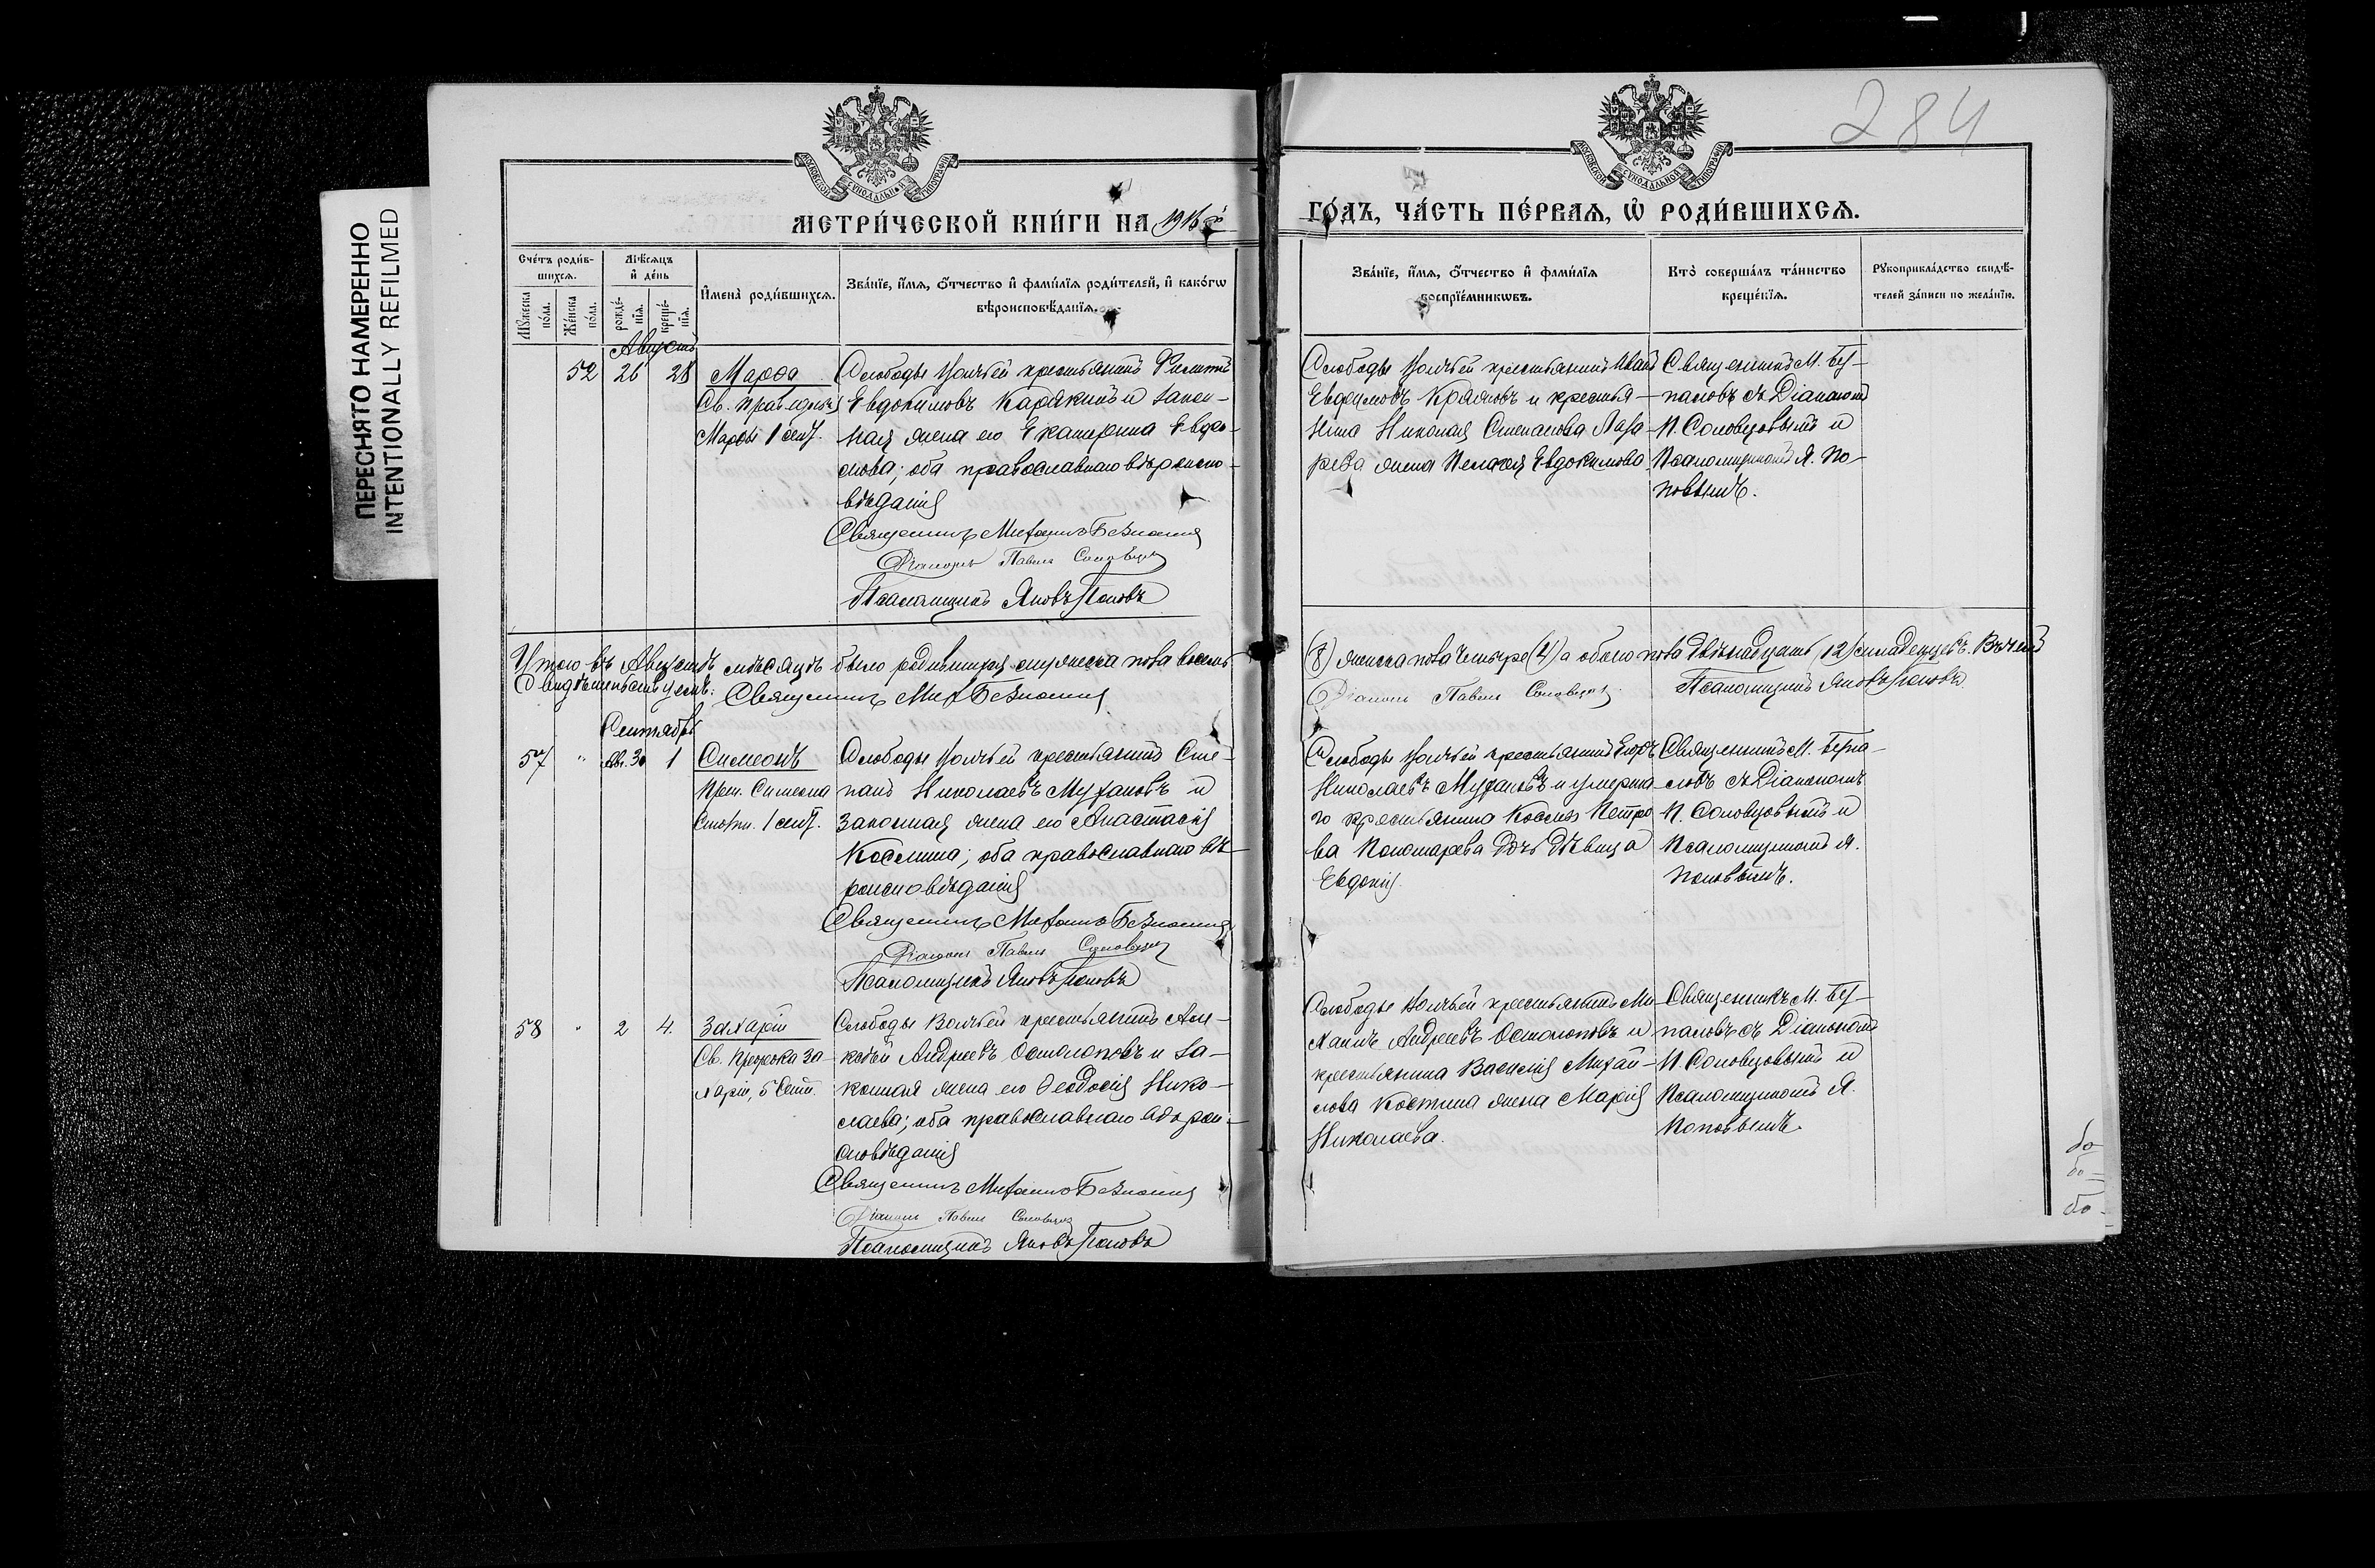 ПЕРЕСНЯТО НАМЕРЕННО
INTENTIONALLY REFILMED
284
МЕТРИ́ЧЕСКОЙ КНИ́ГИ НА 1916й
ГО́ДЪ, ЧА́СТЬ ПЕ́РВАЯ, Ѡ҆ РОДИ́ВШИХСЯ.
Сче́тъ роди́в-
шихся.
Мѣ́сяцъ
и҆ де́нь
Мꙋ́жеска
по́ла.
Же́нска
по́ла.
рожде́-
нїя.
креще́-
нїя.
И҆мена̀ роди́вшихся.
Зва́нїе, и҆́мя, ѻ҆́тчество и҆ фами́лїя роди́телей, и҆ како́гѡ
вѣроисповѣ́данїя.
Зва́нїе, и҆́мя, ѻ҆́тчество и҆ фами́лїя
воспрїе́мникѡвъ.
Кто̀ соверша́лъ та́инство
креще́нїя.
Рꙋкоприкла́дство свидѣ́-
телей за́писи по жела́нїю.
Августъ
52 26 28 Марѳа
Св. праведныя
Марѳы 1 сент.
Слободы Волчьей крестьянинъ Филиппъ
Евдокимовъ Карякинъ и закон-
ная жена его Екатерина Евдо-
кимова; оба православнаго вѣроиспо-
вѣданія
Священникъ Михаилъ
Діаконъ Павелъ Соловцовъ
Псаломщикъ Яковъ Поповъ
Слободы Волчьей крестьянинъ Иванъ
Евфимовъ и крестья-
нина Николая Степанова Лаза-
рева жена Пелагея Евдокимова
Священникъ М.
съ Діакономъ
П. Соловцовымъ и
Псаломщикомъ Я. По-
повымъ.
Итого въ Августѣ мѣсяцѣ было родившихся мужеска пола восемь
(8) женска пола четыре (4) а обоего пола двѣнадцать (12) младенцевъ. Въ чемъ
Свидѣтельствуемъ: Священникъ Мих.
Діаконъ Павелъ Соловцовъ. Псаломщикъ Яковъ Поповъ
Сентябрь
57 " Ав. 30 1 Симеонъ
Преп. Симеона
Столпн. 1 сент.
Слободы Волчьей крестьянинъ Сте-
панъ Николаевъ Мухановъ и
законная жена его Анастасія
Космина; оба православнаго вѣ-
роисповѣданія
Священникъ Михаилъ
Діаконъ Павелъ Соловцовъ
Псаломщикъ Яковъ Поповъ
Слободы Волчьей крестьянинъ Егоръ
Николаевъ Мухановъ и умерша-
го крестьянина Космы Петро-
ва Пономарева дочь дѣвица
Евдокія.
Священникъ М.
съ Діакономъ
П. Соловцовымъ и
Псаломщикомъ Я.
Поповымъ.
58 " 2 4. Захарія
Св. Пророка За-
харіи, 5 Сент.
Слободы Волчьей крестьянинъ Але-
ксѣй Андреевъ Остолоповъ и за-
конная жена его Ѳеодосія Нико-
лаева; оба православнаго вѣрои-
сповѣданія
Священникъ Михаилъ
Діаконъ Павелъ Соловцовъ
Псаломщикъ Яковъ Поповъ
Слободы Волчьей крестьянинъ Ми-
хаилъ Андреевъ Остолоповъ и
крестьянина Василія Михай-
лова Костина жена Марія
Николаева.
Священникъ М.
съ Діакономъ
П. Соловцовымъ и
Псаломщикомъ Я.
Поповымъ.